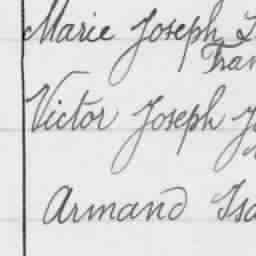 Marie Joseph
Victor Joseph
Armand